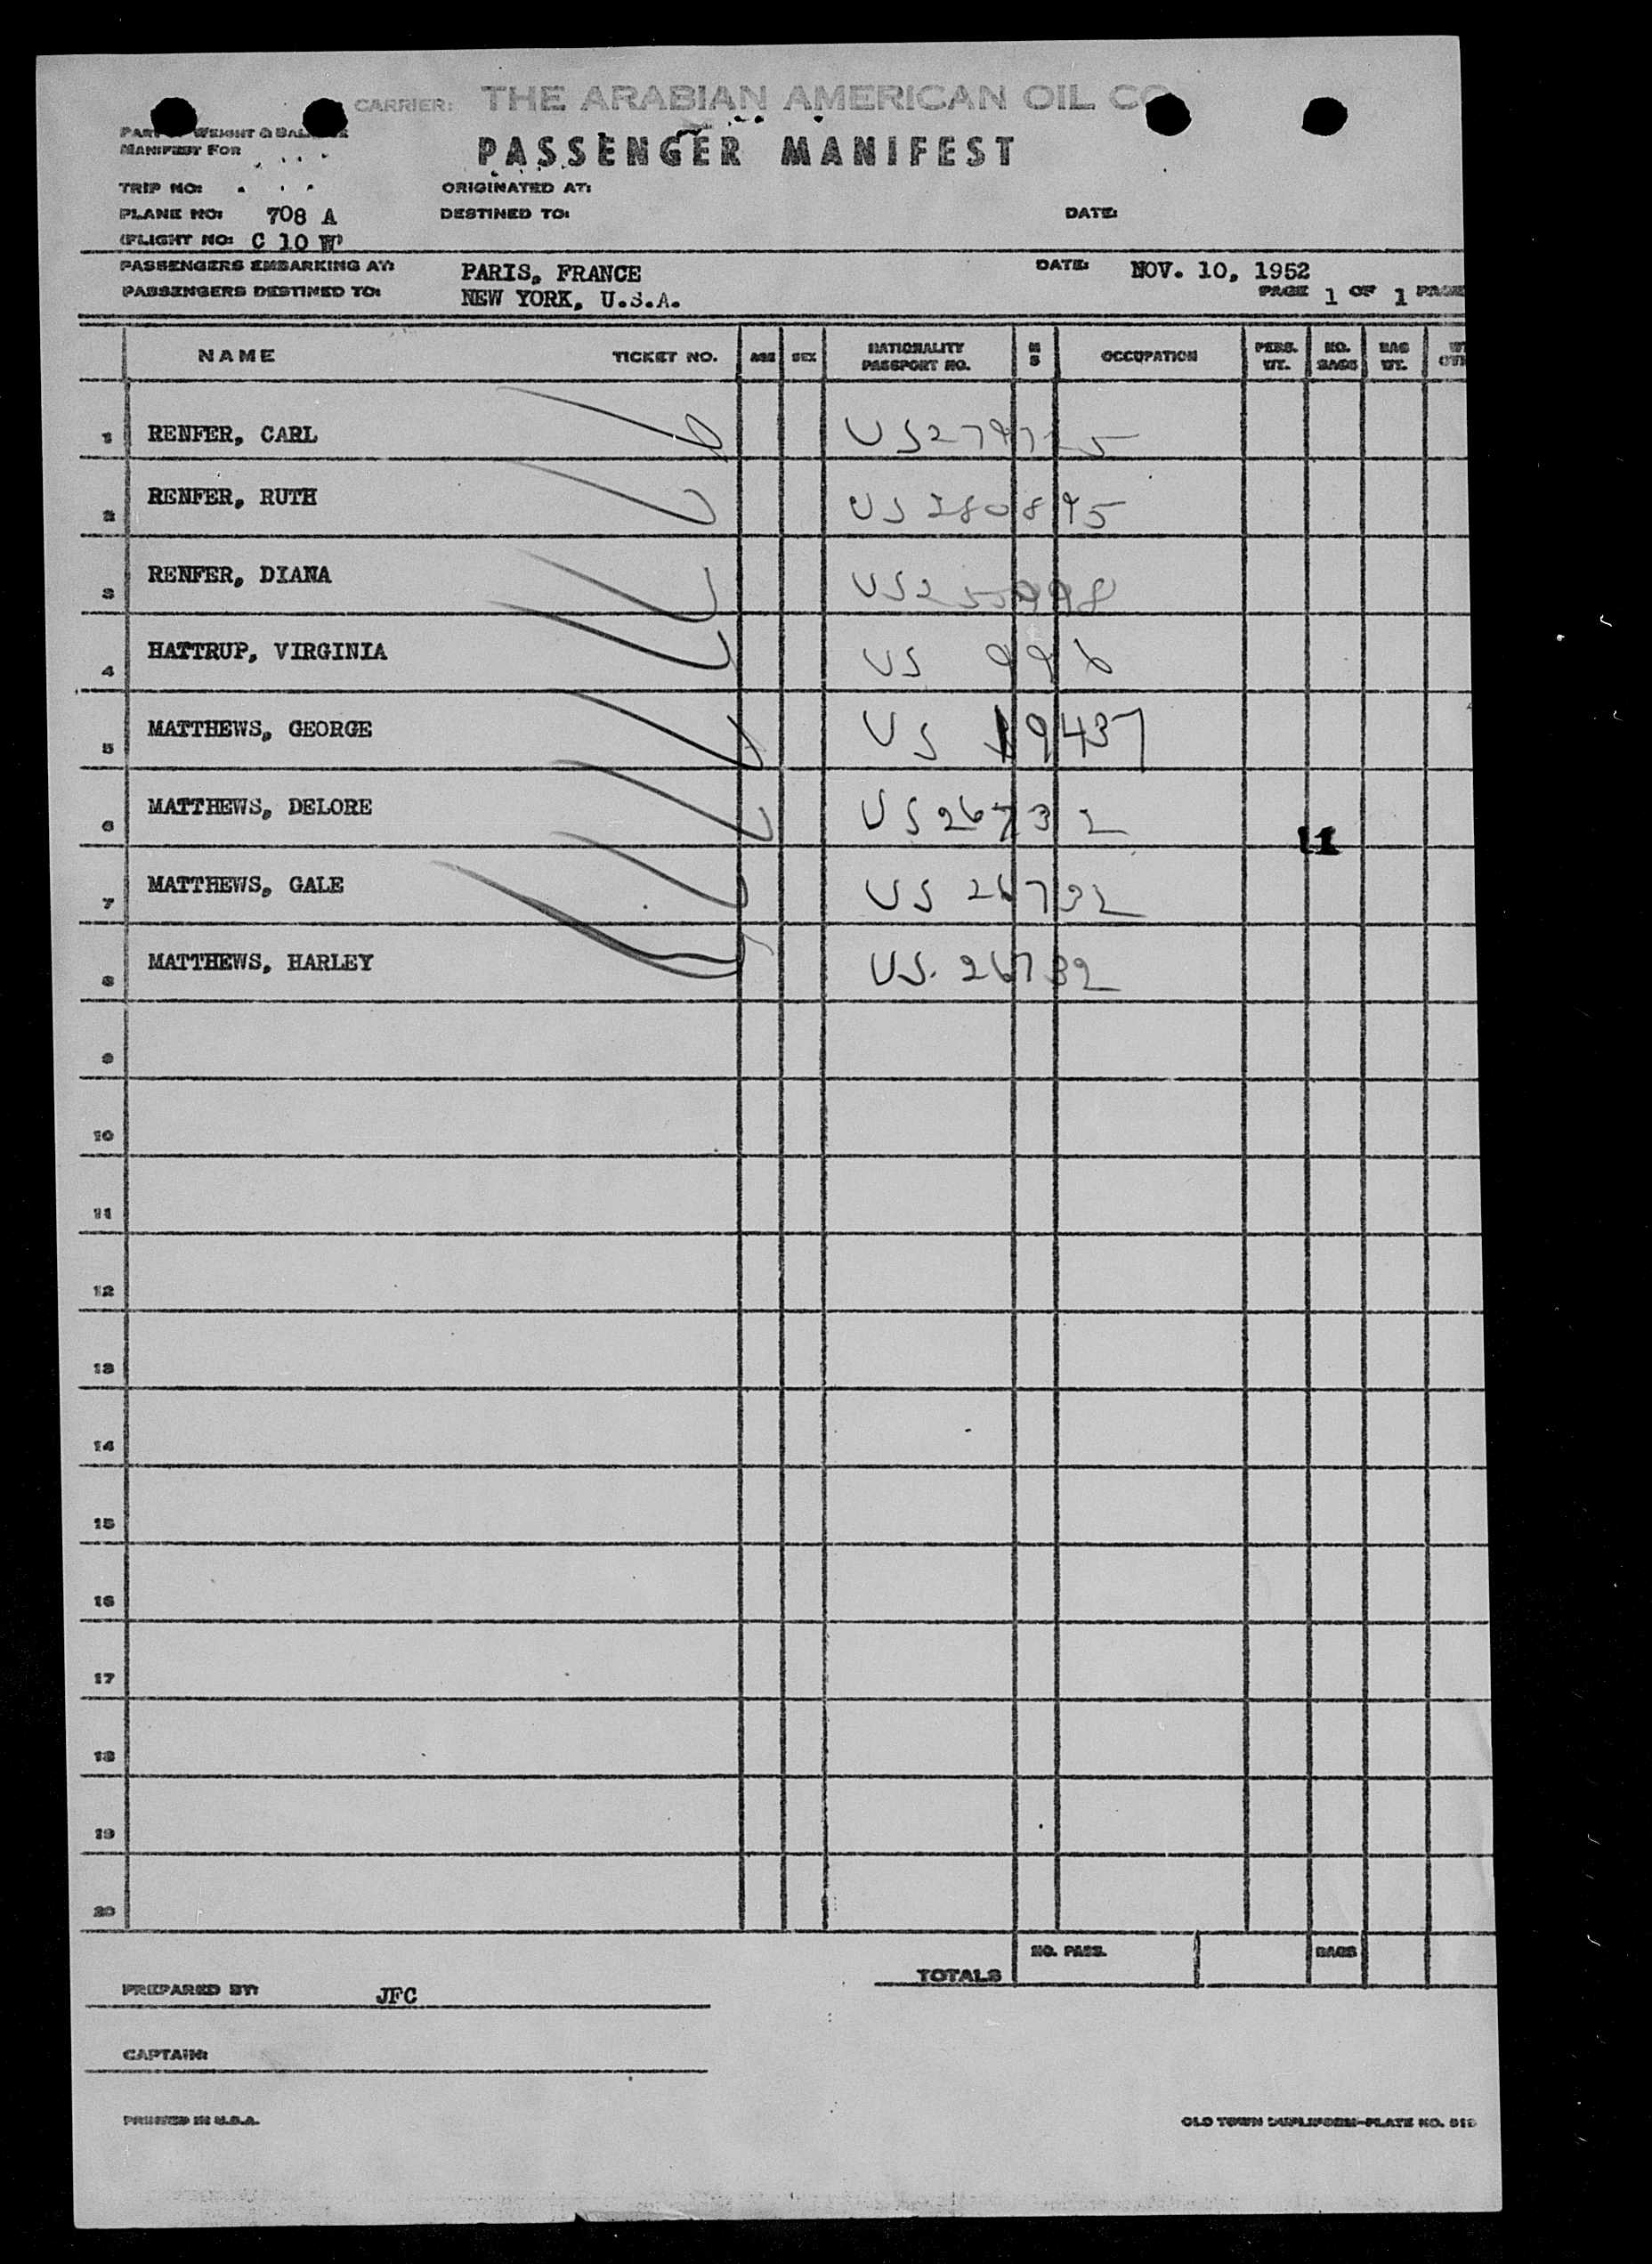 CARRIER: THE ARABIAN AMERICAN OIL CO
PASSENGER MANIFEST
PART OF WEIGHT & BALANCE
MANIFEST FOR
TRIP NO:
ORIGINATED AT:
PLANE NO: 708 A
DESTINED TO:
DATE:
(FLIGHT NO: C 10 W)
PASSENGERS EMBARKING AT: PARIS, FRANCE
DATE: NOV. 10, 1952
PASSENGERS DESTINED TO: NEW YORK, U.S.A.
PAGE 1 OF 1 PAGE
NAME TICKET NO. AGE SEX NATIONALITY PASSPORT NO. M S OCCUPATION PERS. WT. NO. BAGS BAG WT.
1 RENFER, CARL
2 RENFER, RUTH US 280895
3 RENFER, DIANA
4 HATTRUP, VIRGINIA US 996
5 MATTHEWS, GEORGE US 19437
6 MATTHEWS, DELORE US 26732
7 MATTHEWS, GALE US 26732
8 MATTHEWS, HARLEY US. 26732
9
10
11
12
13
14
15
16
17
18
19
20
TOTALS NO. PASS. BAGS
PREPARED BY: JFC
CAPTAIN:
PRINTED IN U.S.A.
OLD TOWN DUPLIFORM-PLATE NO.